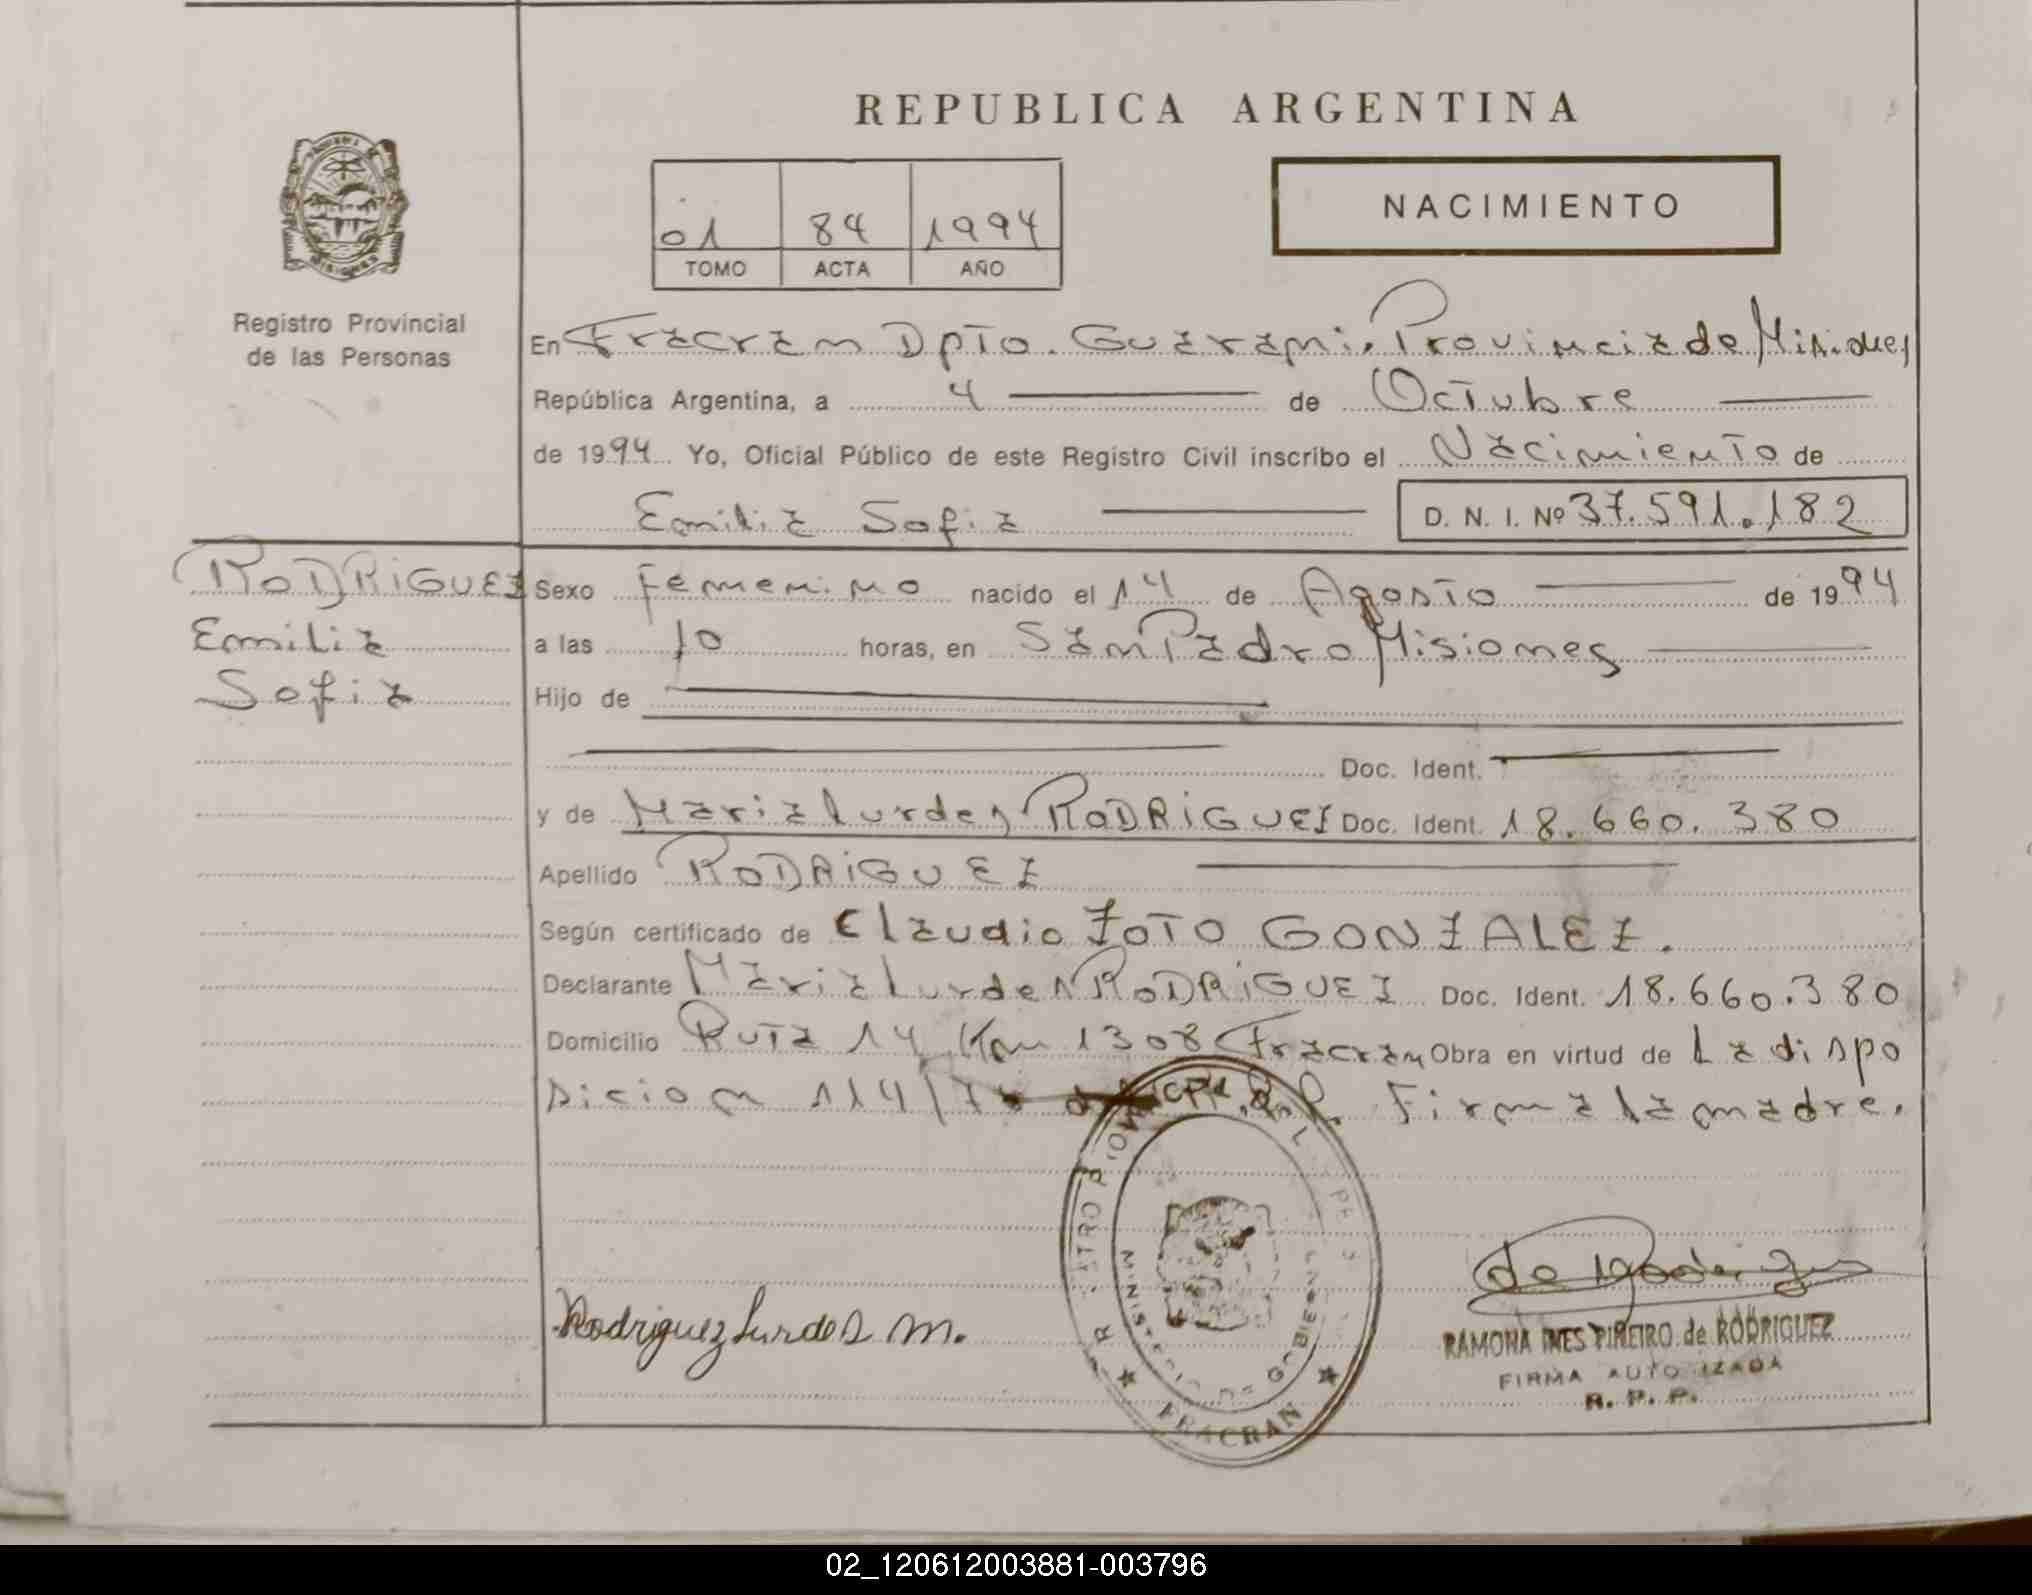 REPUBLICA ARGENTINA
Registro Provincial
de las Personas
01 84 1994
TOMO ACTA AÑO
NACIMIENTO
En Fracran Dpto. Guarani. Provincia de Misiones
República Argentina, a 4 de Octubre
de 1994 Yo, Oficial Público de este Registro Civil inscribo el Nacimiento de
Emilia Sofia D. N. I. Nº 37.591.182
RODRIGUEZ
Emilia
Sofia
Sexo femenino nacido el 14 de Agosto de 1994
a las 10 horas, en San Padro Misiones
Hijo de
Doc. Ident.
y de Maria Lurdes RODRIGUEZ Doc. Ident. 18.660.380
Apellido RODRIGUEZ
Según certificado de Claudio ZOTO GONZALEZ.
Declarante Maria Lurdes RODRIGUEZ Doc. Ident. 18.660.380
Domicilio Ruta 14 Km 1308 Fracran Obra en virtud de La dispo
sicion 114/ R.P. Firma la madre.
Rodriguez Lurdes M.
MINISTERIO DE GOBIERNO
FRACRAN
de Rodriguez
RAMONA INES PIÑEIRO de RODRIGUEZ
FIRMA AUTORIZADA
R. P. P.
02_120612003881-003796